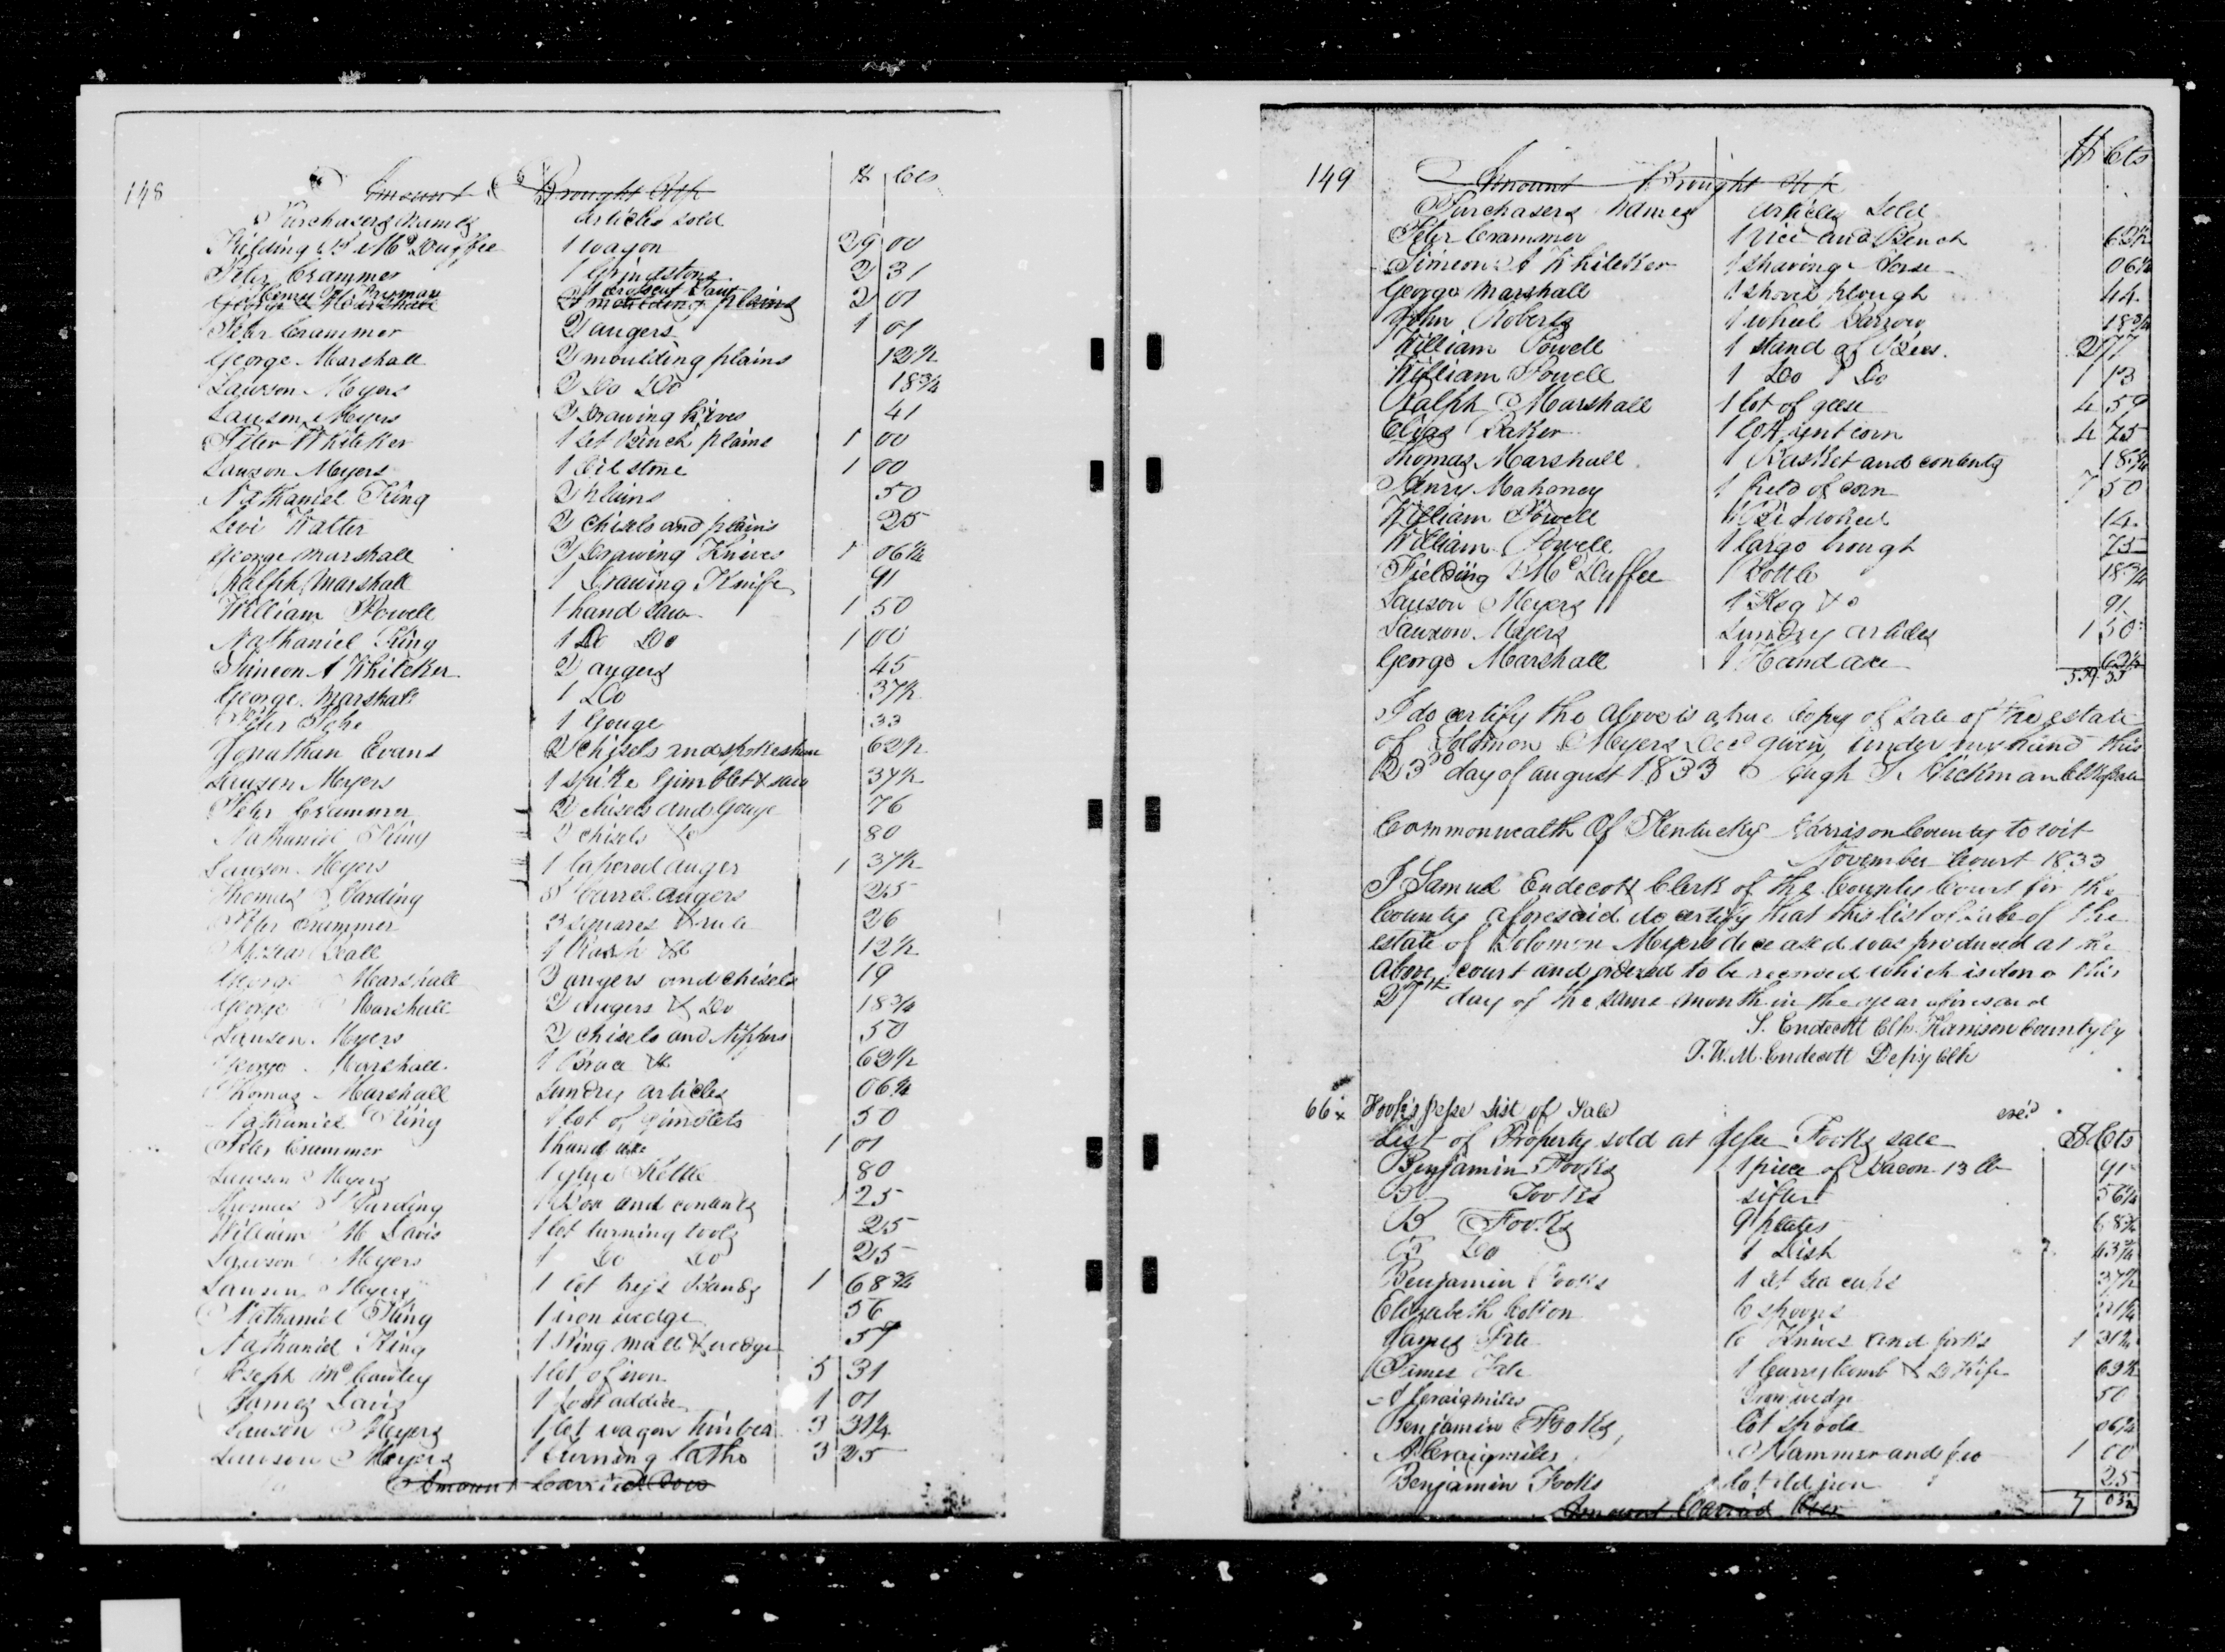 148
Amount Brought Up
$ Cts
Purchasers Names Articles sold
Fielding McDuffee 1 wagon 29 00
Peter Crammer 1 Grindstone 2 31
1 crosscut saw
George Marshall 2 moulding plains 2 01
Peter Crammer 2 augers 1 01
George Marshall 2 moulding plains 12½
Lawson Meyers 2 Do Do 18¾
Lawson Meyers 2 Drawing Knives 41
Peter Whiteker 1 set Bench plains 1 00
Lawson Meyers 1 Oil stone 1 00
Nathaniel King 2 plains 50
Levi Walter 2 chisels and plains 25
George Marshall 2 Drawing Knives 1 06¼
Ralph Marshall 1 Drawing Knife 91
William Powell 1 hand saw 1 50
Nathaniel King 1 Do Do 1 00
Simeon A Whiteker 2 augers 45
George Marshall 1 Do 37½
Peter 1 Gouge 33
Jonathan Evans 2 chisels and spokeshave 62½
Lawson Meyers 1 spike Gimblet & saw 37½
Peter Crammer 2 chisels and Gouge 76
Nathaniel King 2 chisels &c 80
Lawson Meyers 1 tapered auger 1 37½
Thomas Harding barrel augers 25
Peter Crammer 3 squares & rule 26
Hall 1 &c 12½
George Marshall 3 augers and chisels 19
George Marshall 2 Augers & Do 18¾
Lawson Meyers 2 chisels and Nippers 50
George Marshall 1 Brace &c 62½
Thomas Marshall sundry articles 06¼
Nathaniel King 1 lot of gimblets 50
Peter Crammer 1 hand axe 1 01
Lawson Meyers 1 glue Kettle 80
Thomas Harding 1 Box and contents 25
William M Davis 1 lot turning tools 25
Lawson Meyers 1 Do Do 25
Lawson Meyers 1 lot Bands 1 68¾
Nathaniel King 1 iron wedge 56
Nathaniel King 1 Ring mall & wedge 59
Joseph McCauley 1 lot of iron 5 31
James Davis 1 foot addice 1 01
Lawson Meyers 1 lot wagon timber 3 31¼
Lawson Meyers 1 turning Lathe 3 25
Amount Carried Over
149
Amount Brought Up
$ Cts
Purchasers Names Articles Sold
Peter Crammer 1 Vice and Bench 62½
Simeon A Whiteker 1 shaving Horse 06¼
George Marshall 1 shovel plough 44
John Roberts 1 wheel Barrow 18¾
William Powell 1 stand of Bees 2 77
William Powell 1 Do Do 1 13
Ralph Marshall 1 lot of geese 4 59
Elijas Baker 1 lot corn 4 25
Thomas Marshall 1 Basket and contents 18¾
Henry Mahoney 1 field of corn 7 50
William Powell 1 wheel 14
William Powell 1 large trough 75
Fielding McDuffee 1 Bottle 18¾
Lawson Meyers 1 Keg &c 91
Lawson Meyers sundry articles 1 50
George Marshall 1 Hand axe 62½
559 35
I do certify the above is a true Copy of sale of the estate
of Solomon Meyers Decd given under my hand this
23rd day of august 1833 Hugh Hickman Clk
Commonwealth Of Kentucky Harrison County to wit
November Court 1833
I Samuel Endecott Clerk of the County Court for the
County aforesaid do certify that this list of sale of the
estate of Solomon Meyers deceased was produced at the
above court and ordered to be recorded which is done this
27th day of the same month in the year aforesaid
S. Endecott Clk Harrison County by
J.W.M. Endecott Depty Clk
66 x Fook's Jesse List of Sale exd
List of Property sold at Jesse Fooks sale $ Cts
Benjamin Fooks 1 piece of Bacon 13 lb 91
B Fooks sifter 56¼
B Fooks 9 plates 68¾
B Do 1 Dish 43¾
Benjamin Fooks 1 set tea cups 37½
Elizabeth Colton 6 spoons 31¼
James 6 Knives and forks 1 31¼
James 1 Curry Comb & D Knife 69½
A Craigmiles Iron wedge 50
Benjamin Fooks lot spools 06¼
A Craigmiles Hammer and fro 1 00
Benjamin Fooks lot old iron 25
Amount Carried Over 7 03½